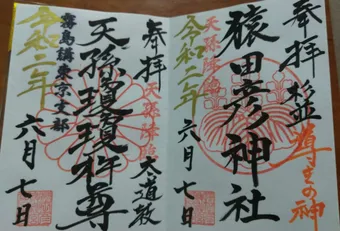 奉拝
杉並
導きの神
猿田彦神社
天孫降臨
令和二年
六月七日
奉拝
天孫降臨
太道教
天孫瓊瓊杵尊
霧島講東京支部
令和二年
六月七日